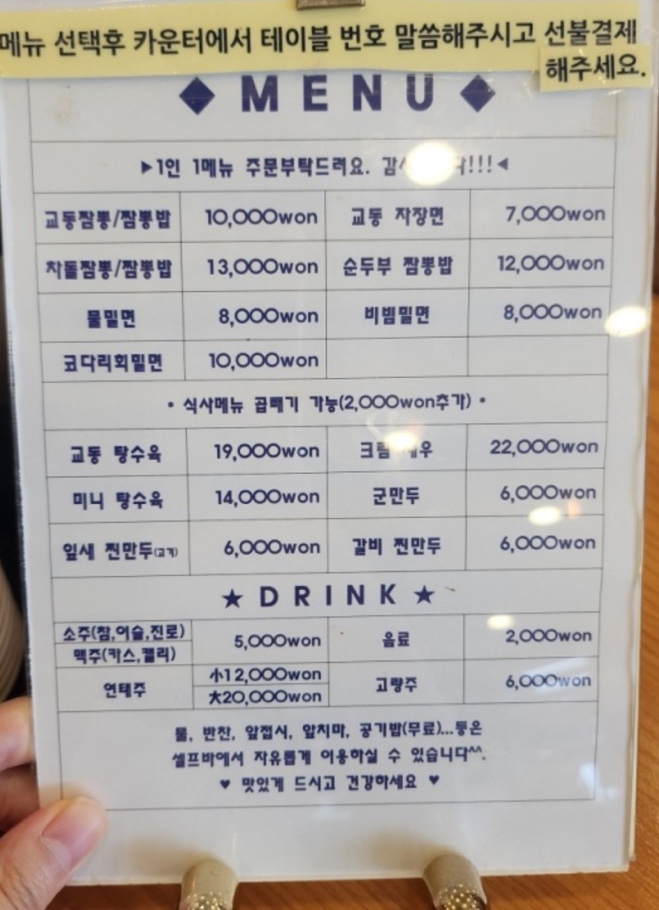 메뉴 선택후 카운터에서 테이블 번호 말씀해주시고 선불결제
해주세요.
◆ MENU ◆
▶1인 1메뉴 주문부탁드려요. !!!◀
교동짬뽕/짬뽕밥 10,000won 교동 자장면 7,000won
차돌짬뽕/짬뽕밥 13,000won 순두부 짬뽕밥 12,000won
물밀면 8,000won 비빔밀면 8,000won
코다리회밀면 10,000won
• 식사메뉴 곱빼기 가능(2,000won추가) •
교동 탕수육 19,000won 크림 22,000won
미니 탕수육 14,000won 군만두 6,000won
잎새 찐만두(고기) 6,000won 갈비 찐만두 6,000won
★ DRINK ★
소주(참,이슬,진로) 5,000won 음료 2,000won
맥주(카스,켈리)
연태주 小12,000won 고량주 6,000won
大20,000won
물, 반찬, 앞접시, 앞치마, 공기밥(무료)...등은
셀프바에서 자유롭게 이용하실 수 있습니다^^.
♥ 맛있게 드시고 건강하세요 ♥